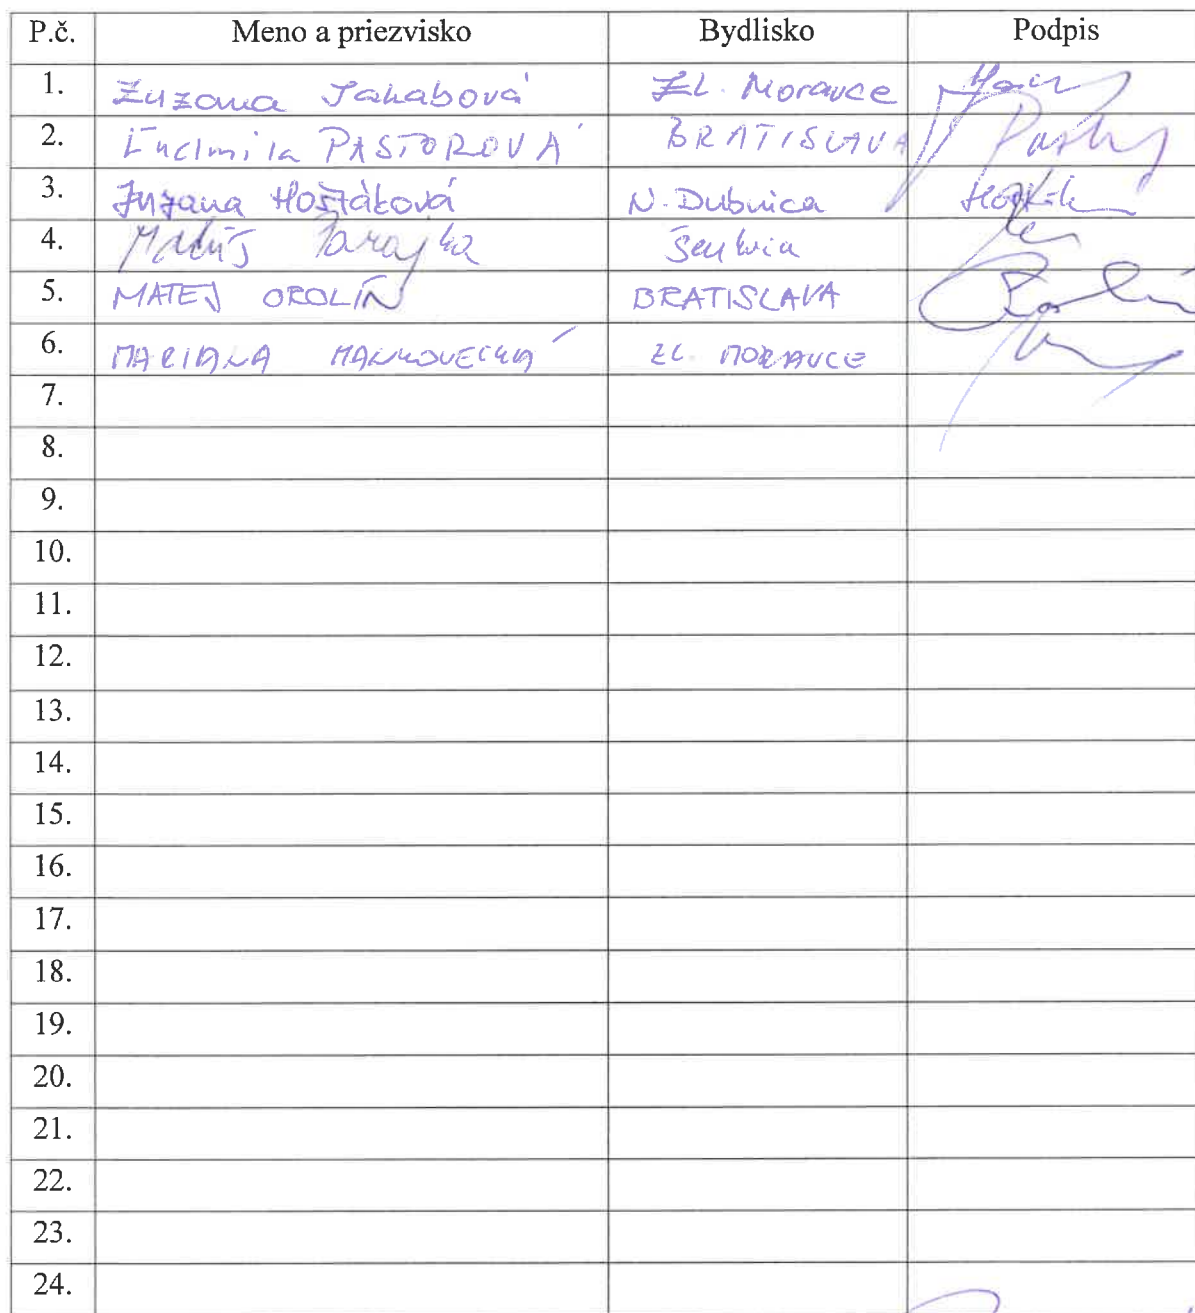 P.č. Meno a priezvisko Bydlisko Podpis
1. Zuzana Jakabová ZL. Moravce
2. Ľudmila PASTOROVÁ BRATISLAVA
3. Zuzana Hošťáková N. Dubnica
4. Matúš Parajka Senkvia
5. MATEJ OROLÍN BRATISLAVA
6. MARIANA ZL. MORAVCE
7.
8.
9.
10.
11.
12.
13.
14.
15.
16.
17.
18.
19.
20.
21.
22.
23.
24.